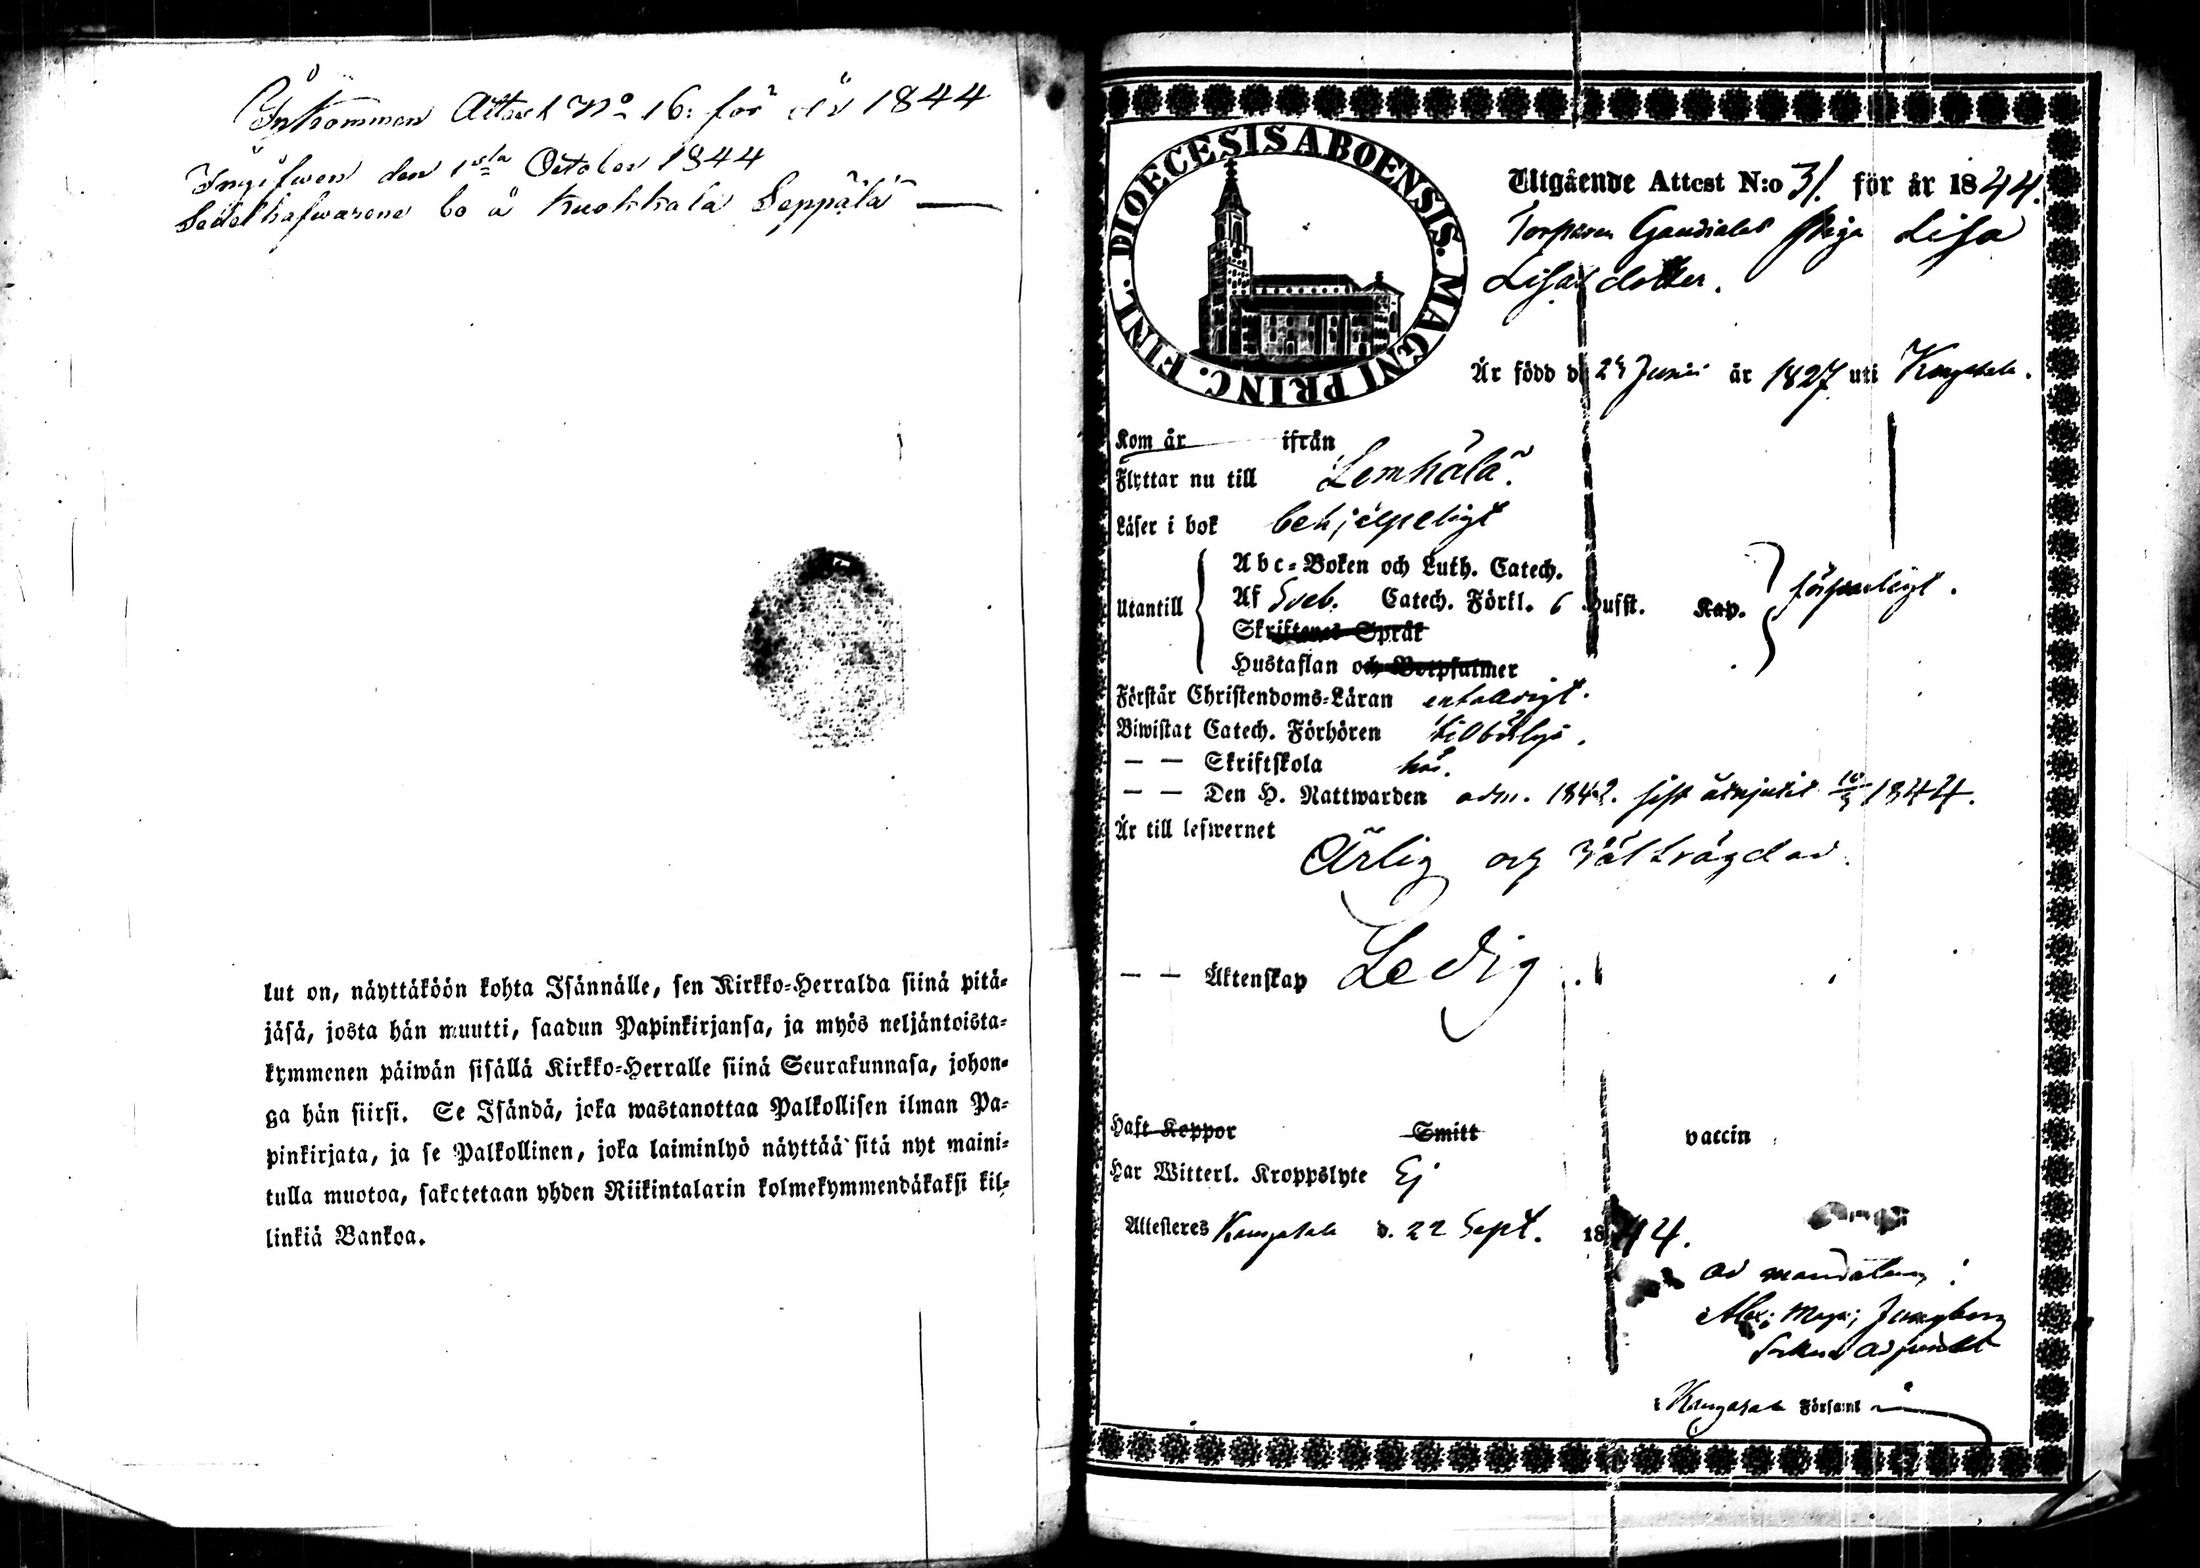 Inkommen Attest No 16: för år 1844
Ingifwen den 1sta October 1844
Sedelhafwarene bo å Kuokkala Seppälä
lut on, näyttäköön kohta Isännälle, sen Kirkko-Herralda siinä pitä-
jäsä, josta hän muutti, saadun Papinkirjansa, ja myös neljäntoista-
kymmenen päiwän sisällä Kirkko-Herralle siinä Seurakunnasa, johon-
ga hän siirsi. Se Isändä, joka wastanottaa Palkollisen ilman Pa-
pinkirjata, ja se Palkollinen, joka laiminlyö näyttää sitä nyt maini-
tulla muotoa, sakotetaan yhden Riikintalarin kolmekymmendäkaksi kil-
linkiä Bankoa.
DIOECESIS ABOENSIS. MAGNI PRINC. FINL.
Utgående Attest N:o 31. för år 1844.
Torparen piga Lisa
Lisasdotter.
Är född d. Junii år 1827 uti Kangasala.
Kom år ifrån
Flyttar nu till Lembälä.
Läser i bok behjelpeligt
Utantill
Abc-Boken och Luth. Catech.
Af Sveb. Catech. Förkl. 6 Hufst. Kap. försvarligt.
Skriftenes Språk
Hustaflan och Botpsalmer
Förstår Christendoms-Läran enfaldigt.
Biwistat Catech. Förhören tillbörligt.
— — Skriftskola här.
— — Den H. Nattwarden adm. 1842. sist åtnjutit 1844.
Är till lefwernet Ärlig och välfrägdad.
— — Äktenskap Ledig.
Haft Koppor Smitt vaccin
Har Witterl. Kroppslyte Ej
Attesteres Kangasala d. 22 Sept. 1844.
ad mandatum:
Adjunct
i Kangasala Församl